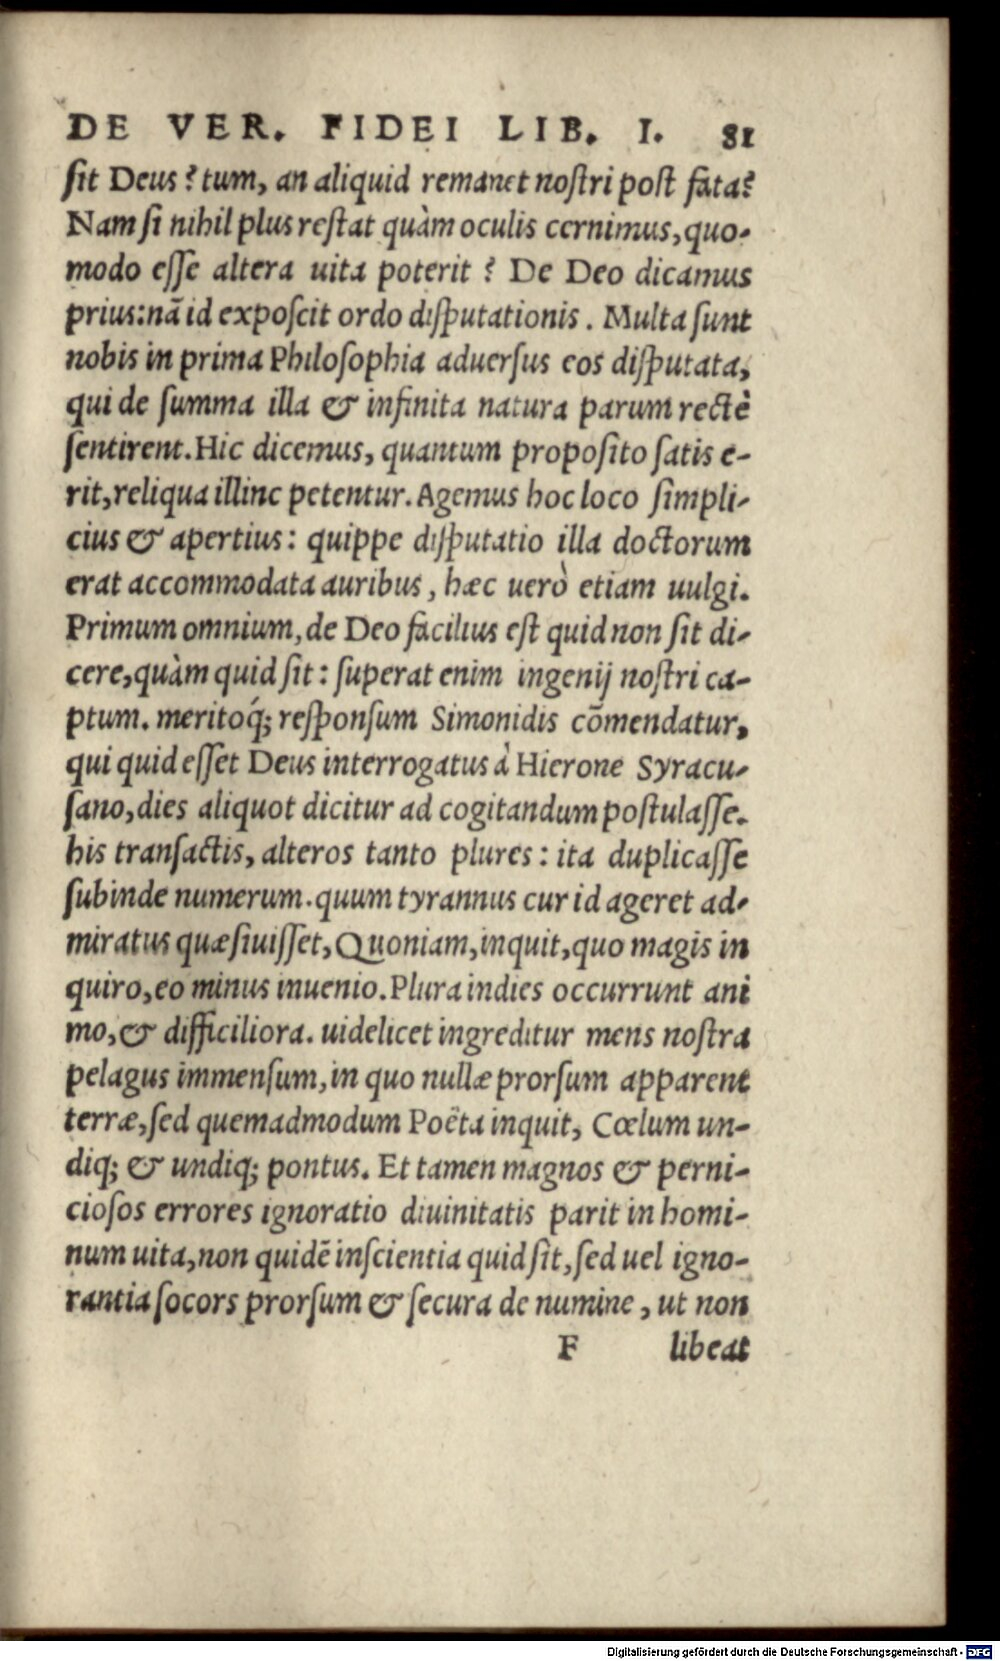 DE VER. FIDEI LIB. I. 81
sit Deus? tum, an aliquid remanet nostri post fata?
Nam si nihil plus restat quàm oculis cernimus, quo-
modo esse altera uita poterit? De Deo dicamus
prius: nã id exposcit ordo disputationis. Multa sunt
nobis in prima Philosophia aduersus eos disputata,
qui de summa illa & infinita natura parum rectè
sentirent. Hic dicemus, quantum proposito satis e-
rit, reliqua illinc petentur. Agemus hoc loco simpli-
cius & apertius: quippe disputatio illa doctorum
erat accommodata auribus, hæc uerò etiam uulgi.
Primum omnium, de Deo facilius est quid non sit di-
cere, quàm quid sit: superat enim ingenij nostri ca-
ptum. meritoq́; responsum Simonidis cõmendatur,
qui quid esset Deus interrogatus à Hierone Syracu-
sano, dies aliquot dicitur ad cogitandum postulasse.
his transactis, alteros tanto plures: ita duplicasse
subinde numerum. quum tyrannus cur id ageret ad-
miratus quæsiuisset, Quoniam, inquit, quo magis in
quiro, eo minus inuenio. Plura indies occurrunt ani
mo, & difficiliora. uidelicet ingreditur mens nostra
pelagus immensum, in quo nullæ prorsum apparent
terræ, sed quemadmodum Poëta inquit, Cœlum un-
diq; & undiq; pontus. Et tamen magnos & perni-
ciosos errores ignoratio diuinitatis parit in homi-
num uita, non quidẽ inscientia quid sit, sed uel igno-
rantia socors prorsum & secura de numine, ut non
F libeat
Digitalisierung gefördert durch die Deutsche Forschungsgemeinschaft - DFG